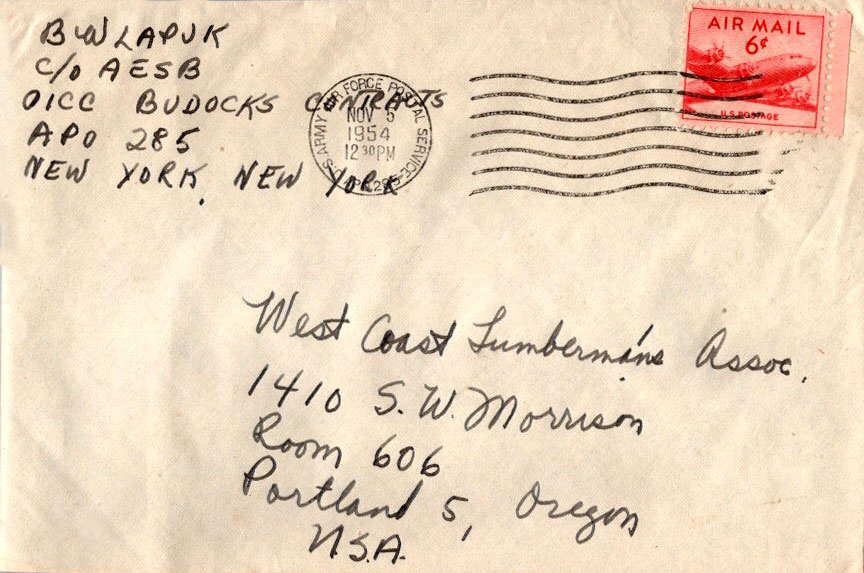 B W LAPUK
C/O AESB
OICC BUDOCKS CONTRACTS
APO 285
NEW YORK, NEW YORK
U.S. ARMY AIR FORCE POSTAL SERVICE
NOV 5
1954
12 30 PM
APO 285
AIR MAIL
6¢
U.S. POSTAGE
West Coast Lumberman's Assoc.
1410 S.W. Morrison
Room 606
Portland 5, Oregon
U.S.A.